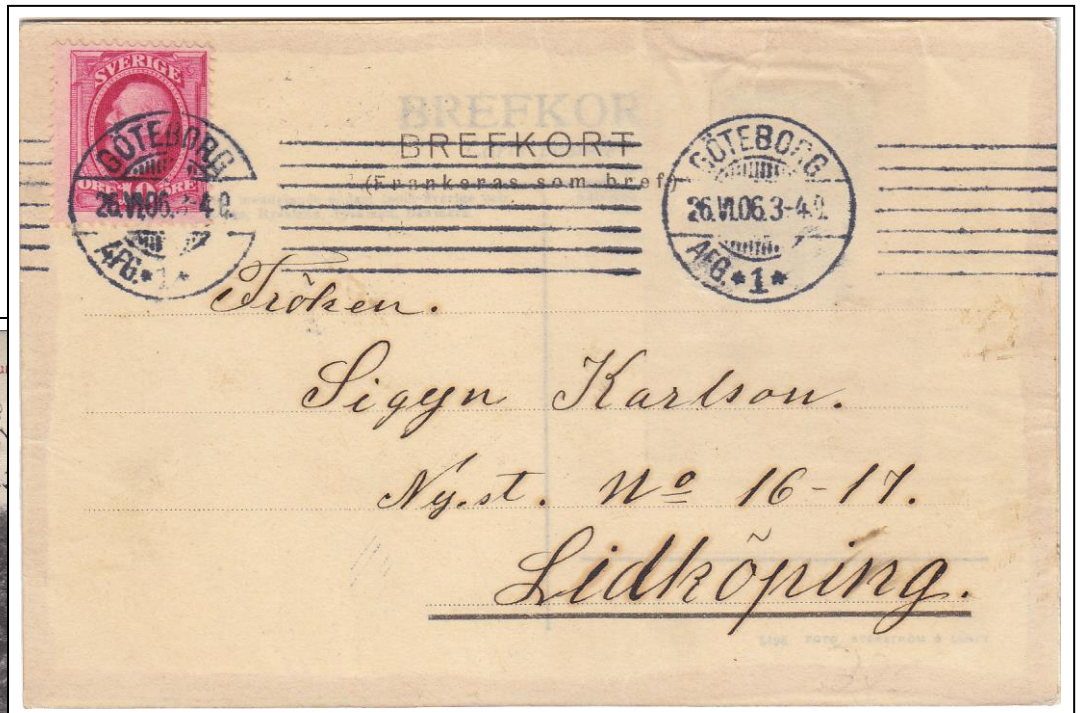 SVERIGE
ÖRE 10 ÖRE
GÖTEBORG
26.VI.06.3-4.
AFG.*1*
BREFKOR
BREFKORT
(Frankeras som bref)
GÖTEBORG
26.VI.06.3-4.
AFG.*1*
Fröken.
Sigyn Karlson.
Ny.st. No 16-17.
Lidköping.